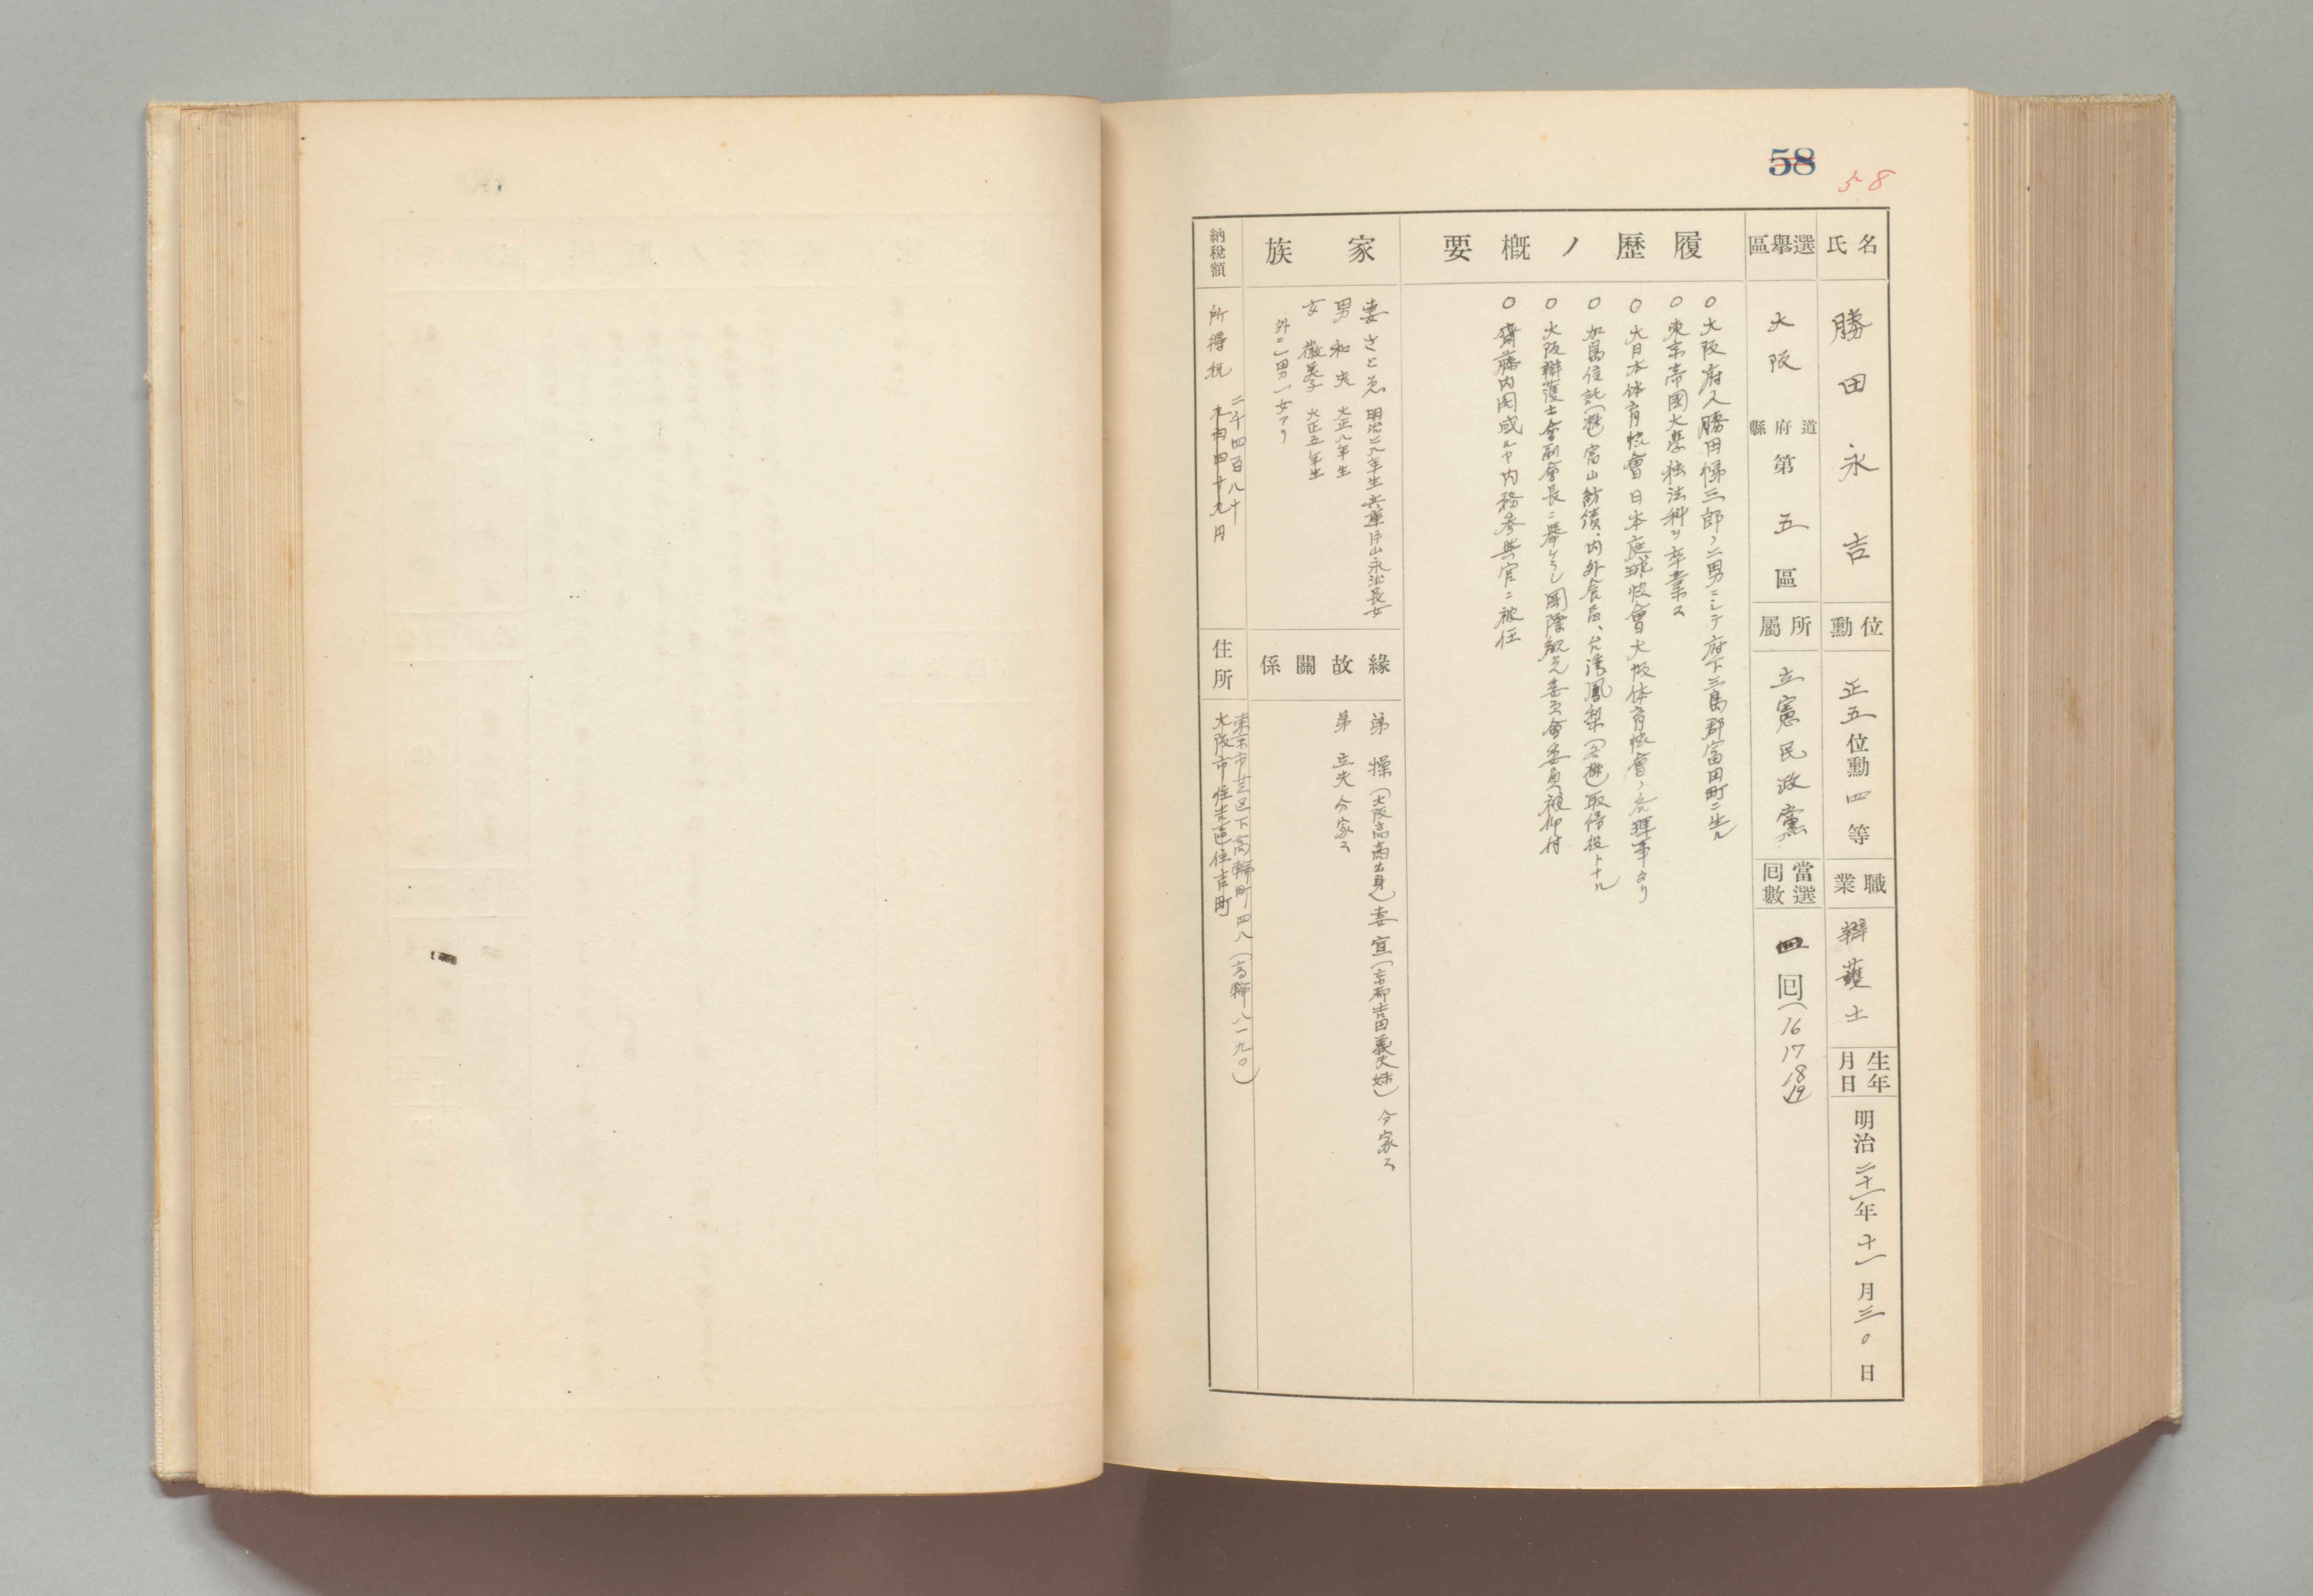 58
58
氏名
勝田永吉
位勳
正五位勳四等
職業
辯護士
生年月日
明治二十一年十一月三〇日
選擧區
大阪道府縣第五區
所屬
立憲民政黨
當選回數
四回(16 17 18 19)
履歷ノ概要
○大阪府人勝田悌三郎ノ二男ニシテ府下三島郡富田町ニ生ル
○東京帝國大學独法科ヲ卒業ス
○大日本体育協會日本庭球協會大阪体育協會ノ各理事タリ
○加島信託(株)富山紡績、内外食品、台湾鳳梨(各株)取締役トナル
○大阪辯護士會副會長ニ擧ケラレ國際観光委員會委員被仰付
○齋藤内閣成ルヤ内務参與官ニ被任
家族
妻 さとゑ 明治二九年生 兵庫片山永治長女
男 和夫 大正八年生
女 徽美子 大正五年生
外ニ一男一女アリ
緣故關係
弟 操(大阪高商出身)妻宣(京都吉田義夫姉)分家ス
弟 立夫 分家ス
納稅額
所得税
二千四百八十
四十九円
住所
東京市芝区下高輪町四八(高輪八一九〇)
大阪市住吉區住吉町